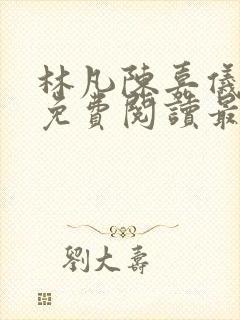 林凡陳嘉儀
免費閱讀最
劉大壽